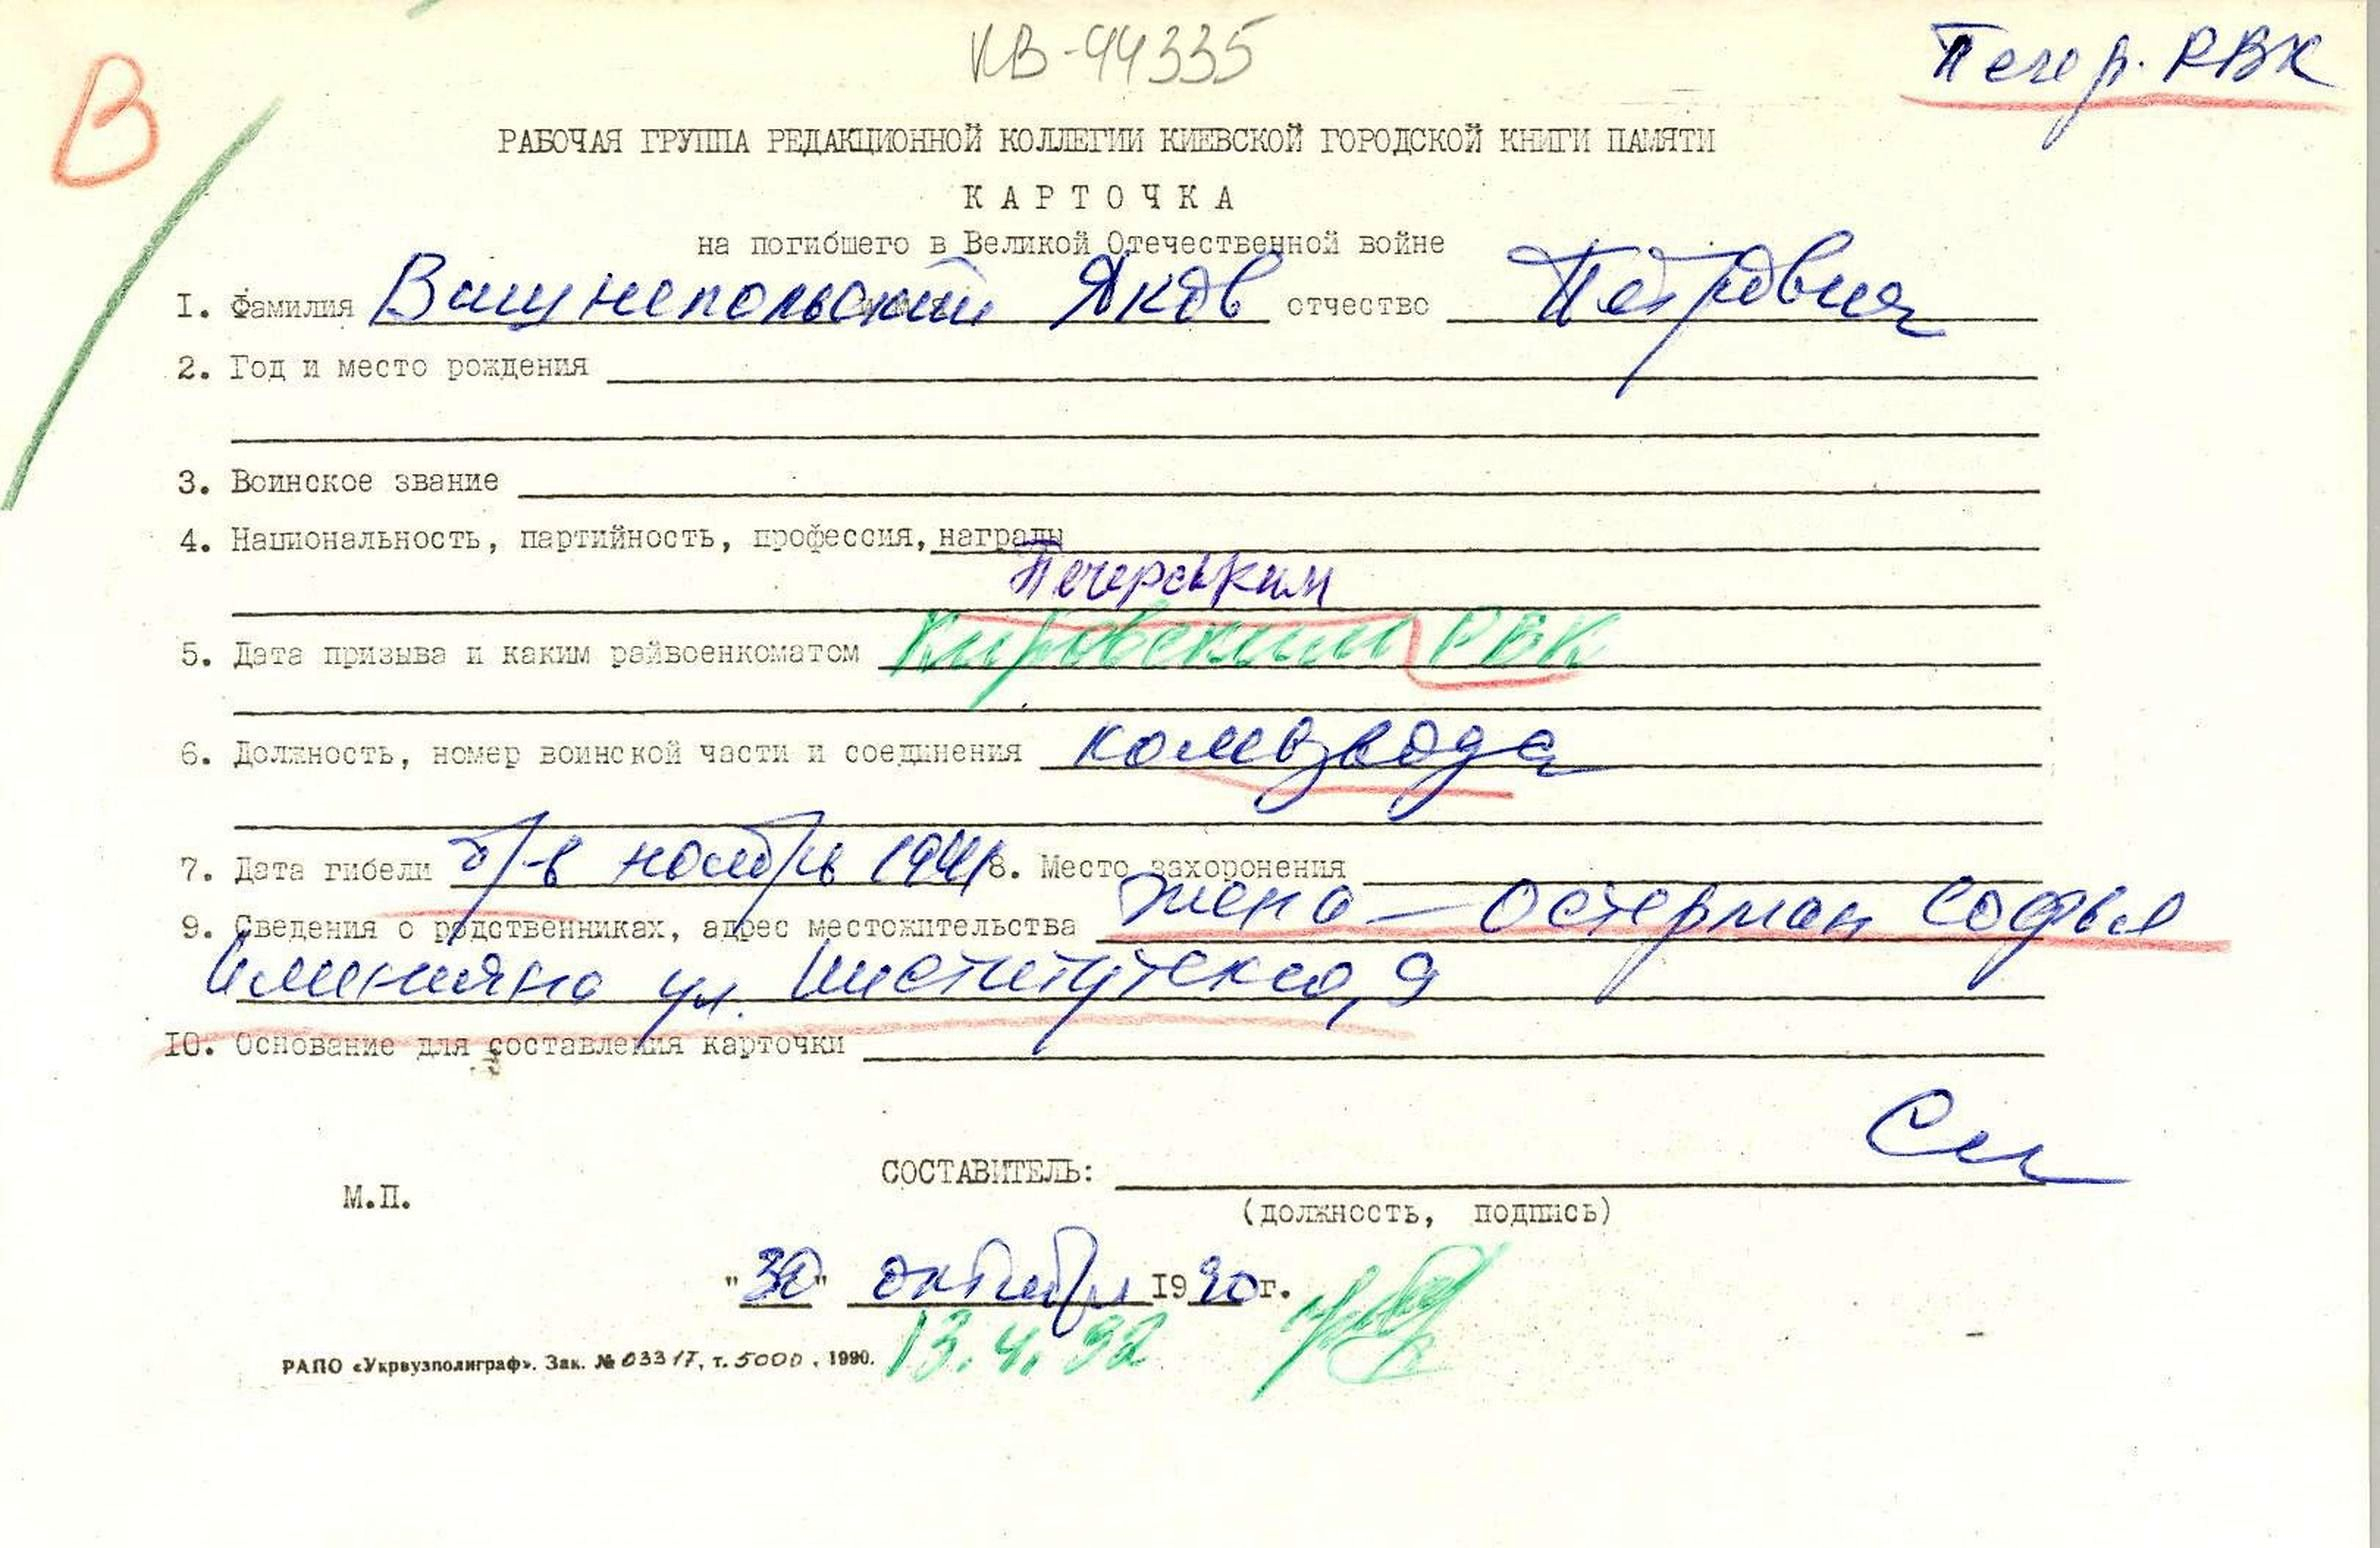 КВ-44335
Печер. РВК
В
РАБОЧАЯ ГРУППА РЕДАКЦИОННОЙ КОЛЛЕГИИ КИЕВСКОЙ ГОРОДСКОЙ КНИГИ ПАМЯТИ
КАРТОЧКА
на погибшего в Великой Отечественной войне
1. Фамилия Вишнепольский Яков отчество Петрович
2. Год и место рождения
3. Воинское звание
4. Национальность, партийность, профессия, награды
Печерським
5. Дата призыва и каким райвоенкоматом Кировским РВК
6. Должность, номер воинской части и соединения комвзвода
7. Дата гибели б/в ноябрь 1941 8. Место захоронения
9. Сведения о родственниках, адрес местожительства жена — Остерман Софья
ул. Институтская, 9
10. Основание для составления карточки
СОСТАВИТЕЛЬ:
М.П.
(должность, подпись)
"30" октября 1990 г.
13.4.92
РАПО «Укрвузполиграф». Зак. № 03317, т. 5000, 1990.